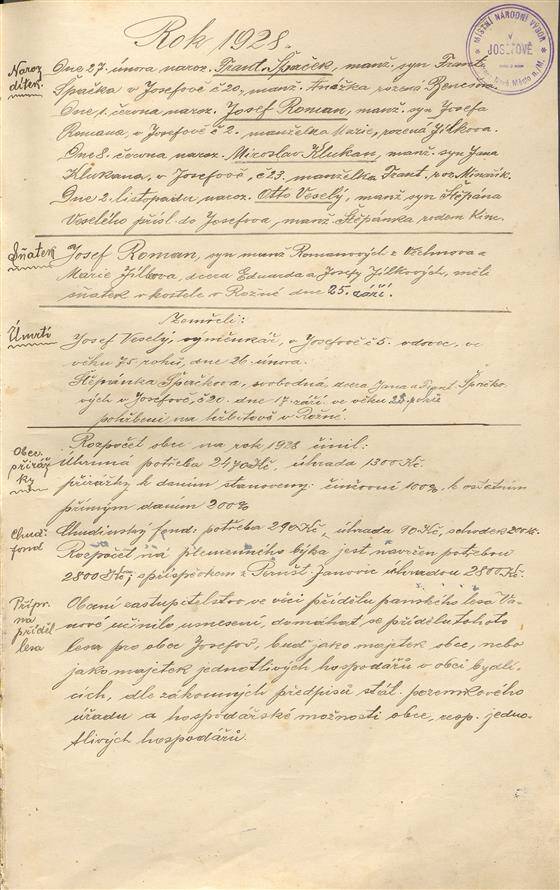 Rok 1928.
MÍSTNÍ NÁRODNÍ VÝBOR
V
JOSEFOVĚ
Nové Město n. M.
Naroz.
dítek.
Dne 27. února naroz. Frant. Špaček, manž. syn Frant.
Špačka v Josefově č 20., manž. Anežka rozená Benešova.
Dne 1. června naroz. Josef Roman, manž. syn Josefa
Romana, v Josefově č 2. manželka Marie, rozená Jílkova.
Dne 8. června naroz. Miroslav Klukan, manž. syn Jana
Klukana, v Josefově, č 23. manželka Frant., roz. Minařík.
Dne 2. listopadu naroz. Otto Veselý, manž. syn Štěpána
Veselého přísl. do Josefova, manž. Štěpánka rodem
Sňatek
Josef Roman, syn manž Romanových z Věchnova a
Marie Jílkova, dcera Eduarda a Josefy Jílkových, měli
sňatek v kostele v Rožné dne 25. září.
Úmrtí
Zemřeli:
Josef Veselý, výměnkář, v Josefově č 5. vdovec, ve
věku 75 roků, dne 26. února.
Štěpánka Špačkova, svobodná dcera Jana a Frant. Špačko-
vých v Josefově, č 20. dne 17. září ve věku 23 roků
pohřbeni na hřbitově v Rožné.
Obec.
přiráž
ky
Rozpočet obce na rok 1928 činil:
Úhrnná potřeba 2470 Kč, úhrada 1300 Kč.
přirážky k daním stanoveny: činžovní 100%, k ostatním
přímým daním 200%
Chud.
fond
Chudinský fond: potřeba 290 Kč, úhrada 90 Kč, schodek 200 Kč.
Rozpočet na plemenného býka jest navržen potřebou
2800 Kč; s příspěvkem z Pernšt. Janovic úhradou 2800 Kč.
Přípr.
na příděl
lesa
Obecní zastupitelstvo ve věci přídělu panského lesa Va-
nové učinilo usnesení, domáhat se přídělu tohoto
lesa pro obec Josefov, buď jako majetek obce, nebo
jako majetek jednotlivých hospodářů v obci bydlí-
cích, dle zákonných předpisů stát. pozemkového
úřadu a hospodářské možnosti obce, resp. jedno-
tlivých hospodářů.